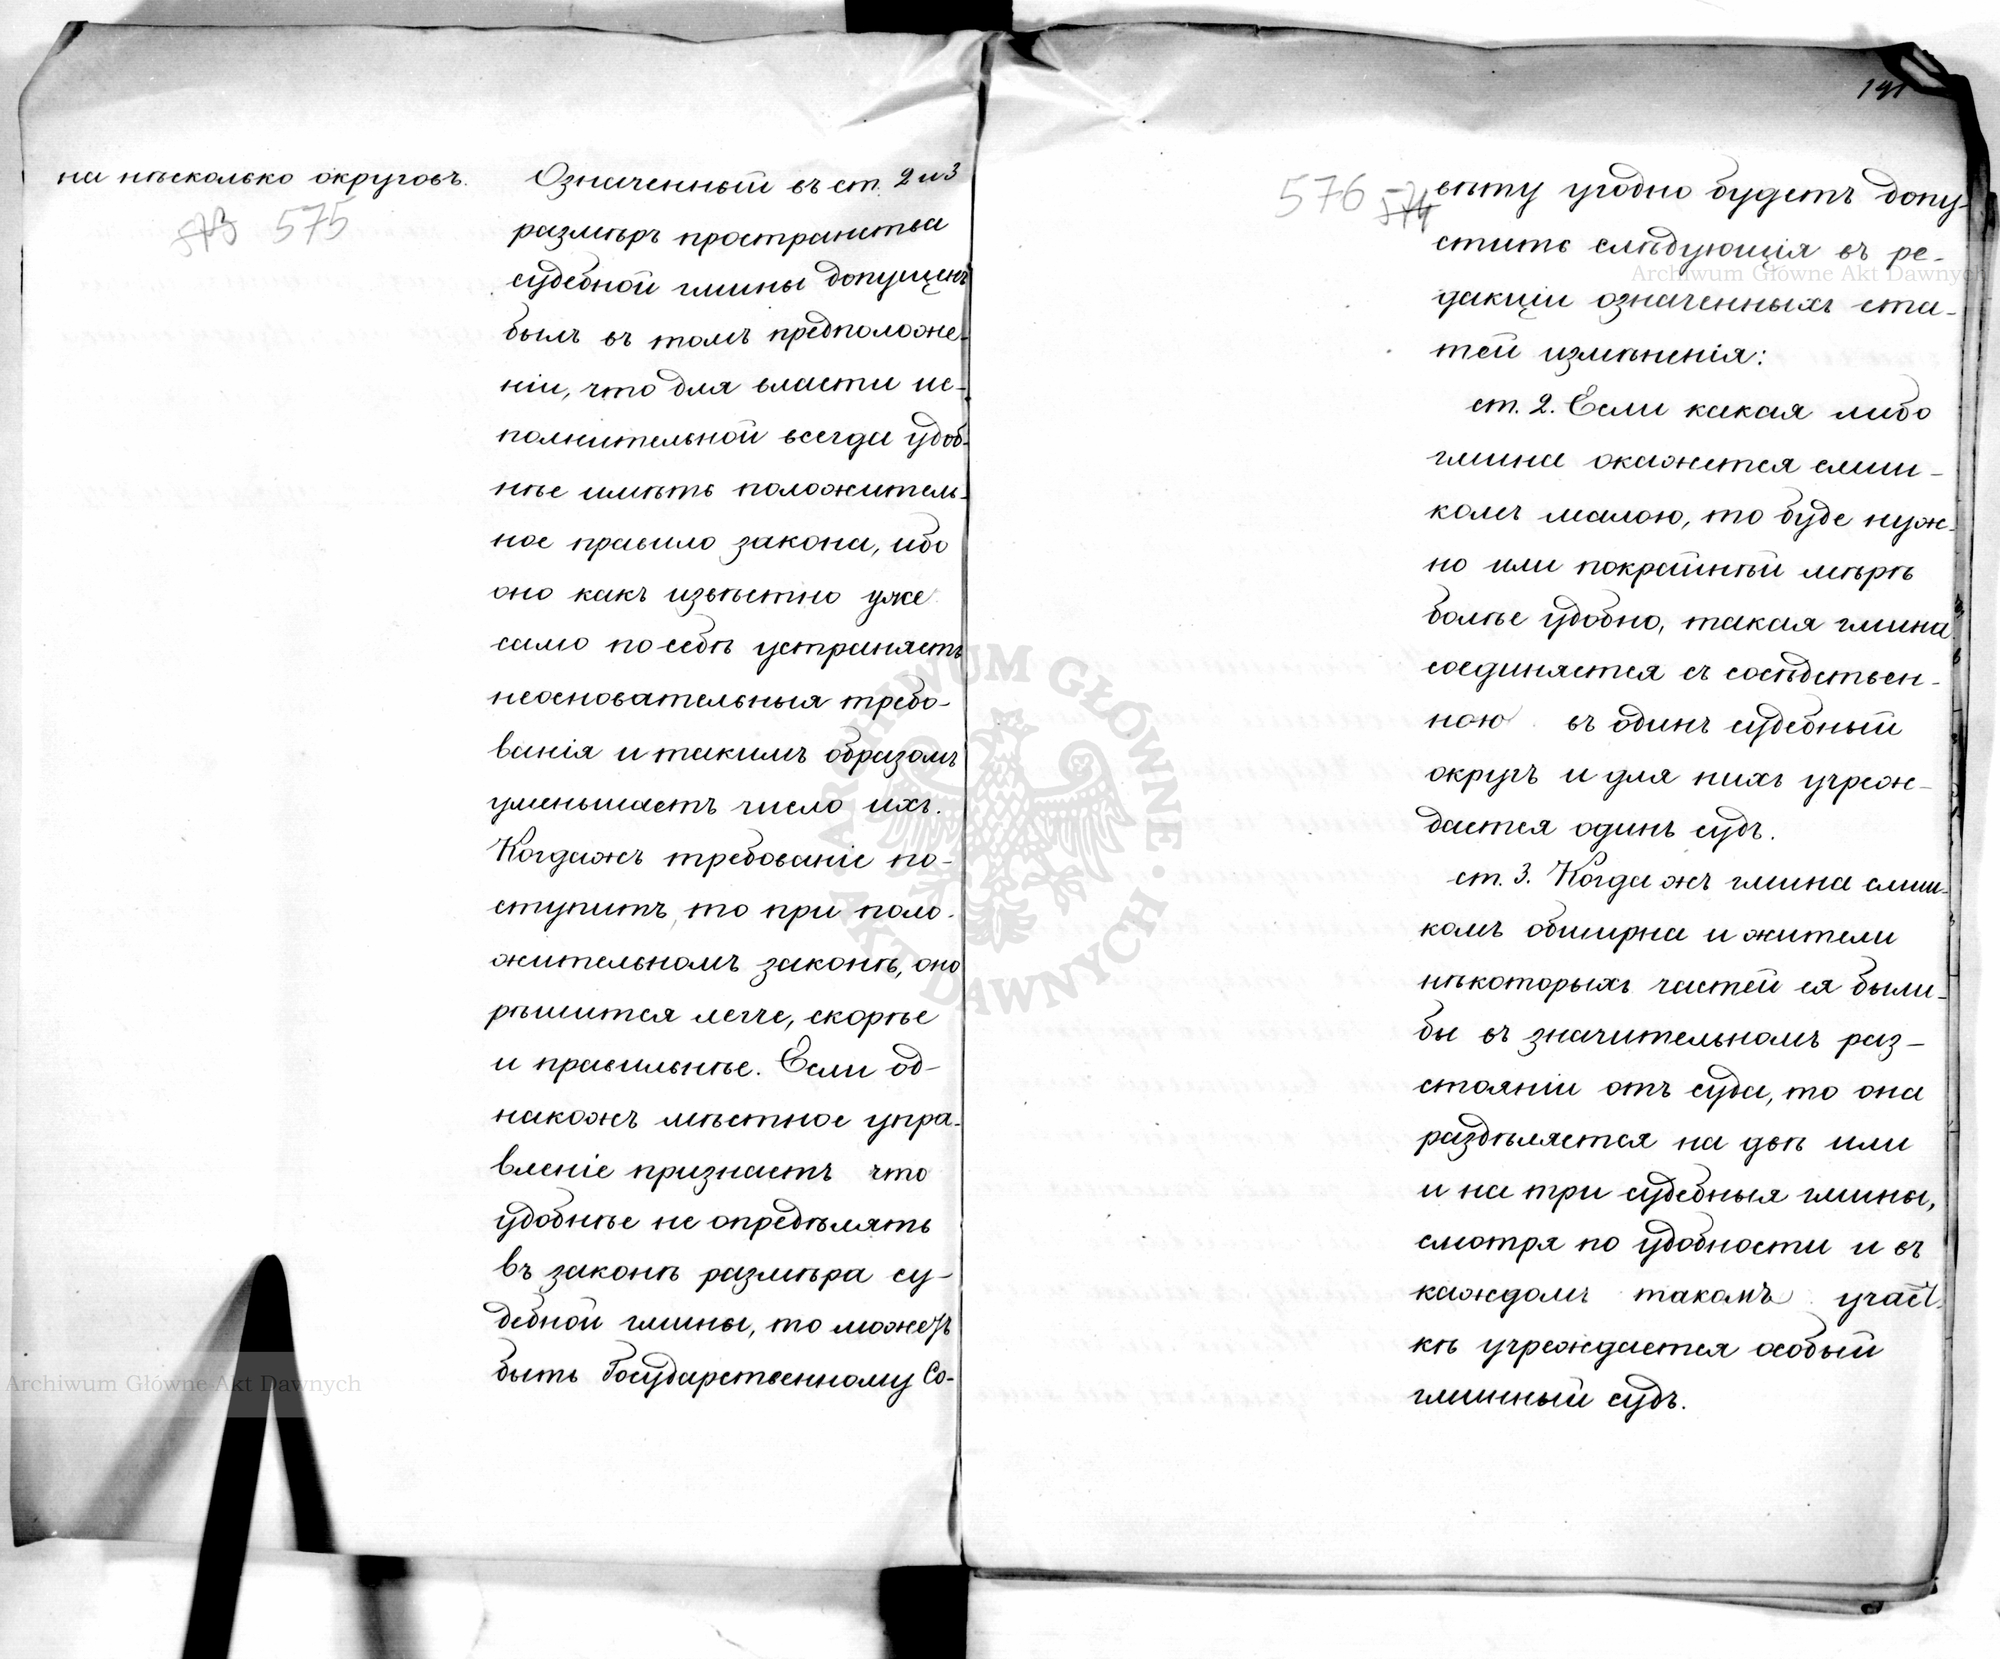 на нѣсколько округовъ.
573 575
Означенный въ ст. 2 и 3
размѣръ пространства
судебной гмины допущенъ
былъ въ томъ предположе-
ніи, что для власти ис-
полнительной всегда удоб-
нѣе имѣть положитель-
ное правило закона, ибо
оно какъ извѣстно уже
само по себѣ устраняетъ
неосновательныя требо-
ванія и такимъ образомъ
уменьшаетъ число ихъ.
Когдажъ требованіе по-
ступитъ, то при поло-
жительномъ законѣ, оно
рѣшится легче, скорѣе
и правильнѣе. Если од-
накожъ мѣстное упра-
вленіе признаетъ что
удобнѣе не опредѣлять
въ законѣ размѣра су-
дебной гмины, то можетъ
быть Государственному Со-
141
576 574
вѣту угодно будетъ допу-
стить слѣдующія въ ре-
дакціи означенныхъ ста-
тей измѣненія:
ст. 2. Если какая либо
гмина окажется слиш-
комъ малою, то буде нуж-
но или покрайнѣй мѣрѣ
болѣе удобно, такая гмина
соединяется съ сосѣдствен-
ною въ одинъ судебный
округъ и для нихъ учреж-
дается одинъ судъ.
ст. 3. Когда жъ гмина слиш-
комъ обширна и жители
нѣкоторыхъ частей ея были-
бы въ значительномъ раз-
стояніи отъ суда, то она
раздѣляется на двѣ или
и на три судебныя гмины,
смотря по удобности и въ
каждомъ такомъ участ-
кѣ учреждается особый
гминный судъ.
Archiwum Główne Akt Dawnych
Archiwum Główne Akt Dawnych
ARCHIWUM GŁÓWNE AKT DAWNYCH